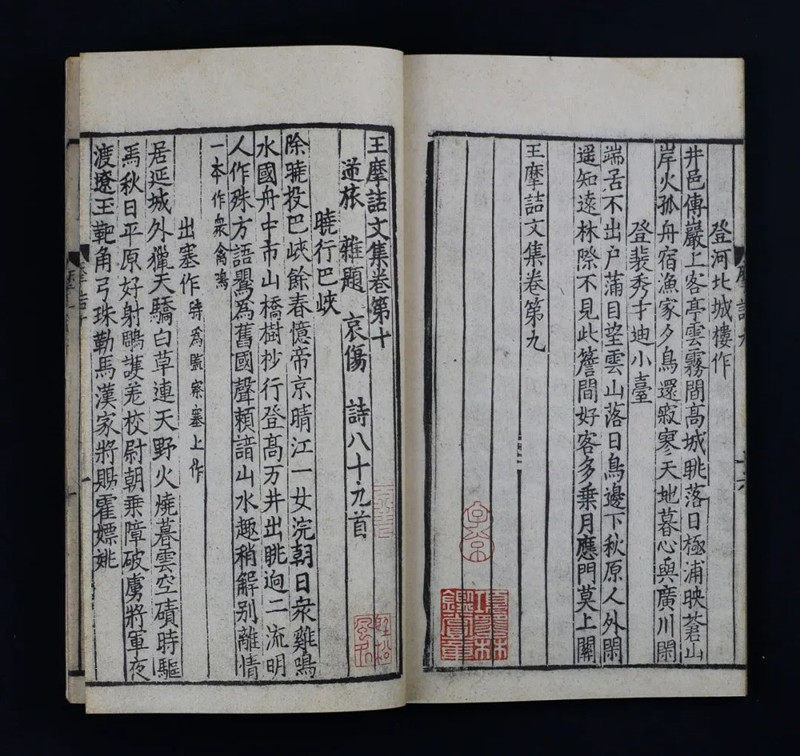 登河北城樓作
井邑傅巖上客亭雲霧間高城眺落日極浦映蒼山
岸火孤舟宿漁家夕鳥還寂寥天地暮心與廣川閑
登裴秀才迪小臺
端居不出戶滿目望雲山落日鳥邊下秋原人外閑
遥知遠林際不見此簷間好客多乗月應門莫上關
王摩詰文集卷第九
王摩詰文集卷第十
逆旅 雜題 哀傷 詩八十九首
曉行巴峽
除曉投巴峽餘春憶帝京晴江一女浣朝日衆雞鳴
水國舟中市山橋樹杪行登高万井出眺迥二流明
人作殊方語鸎為舊國聲頼諳山水趣稍解别離情
一本作衆禽鳴
出塞作 時為監察塞上作
居延城外獵天驕白草連天野火燒暮雲空磧時驅
馬秋日平原好射鵰護羌校尉朝乗障破虜將軍夜
渡遼玉靶角弓珠勒馬漢家將賜霍嫖姚